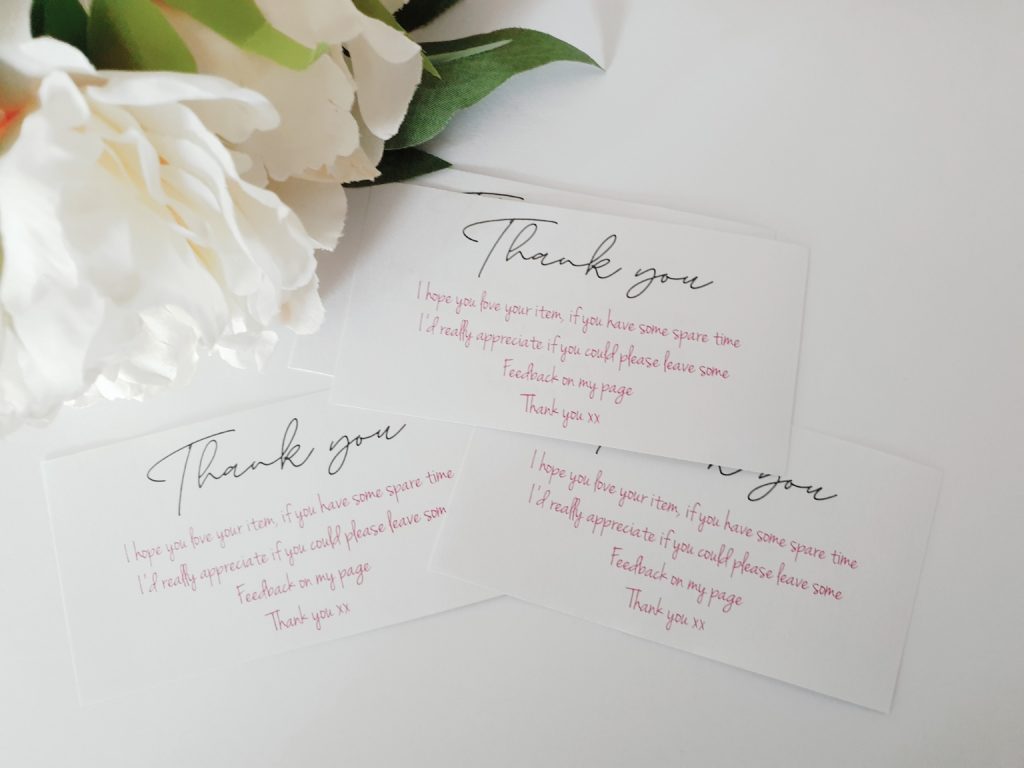 Thank you
I hope you love your item, if you have some spare time
I'd really appreciate if you could please leave some
Feedback on my page
Thank you xx
Thank you
I hope you love your item, if you have some spare time
I'd really appreciate if you could please leave som
Feedback on my page
Thank you xx
you
I hope you love your item, if you have some spare time
I'd really appreciate if you could please leave some
Feedback on my page
Thank you xx